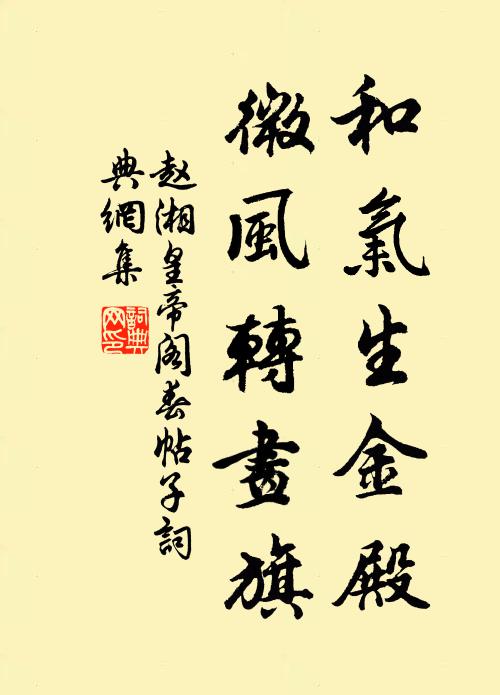 和氣生金殿
微風轉畫旗
赵湘皇帝阁春帖子詞
典網集
詞典网印